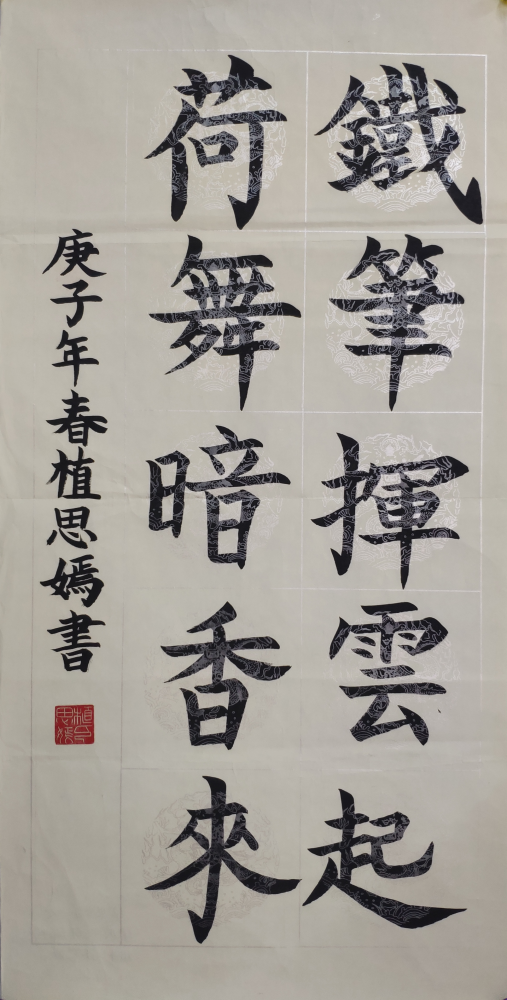 鐵筆揮雲起
荷舞暗香來
庚子年春植思嫣書